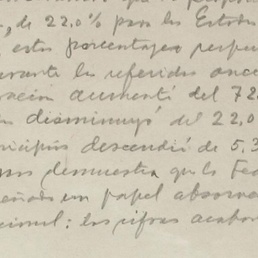 , de 22.0% para los Estados
estos porcentajes
durante los referidos once
ración aumentó del 72
disminuyó del 22.0
nicipios descendió de 5.3
demuestra que la Fed
eñado un papel absorv
cional: las cifras acabo